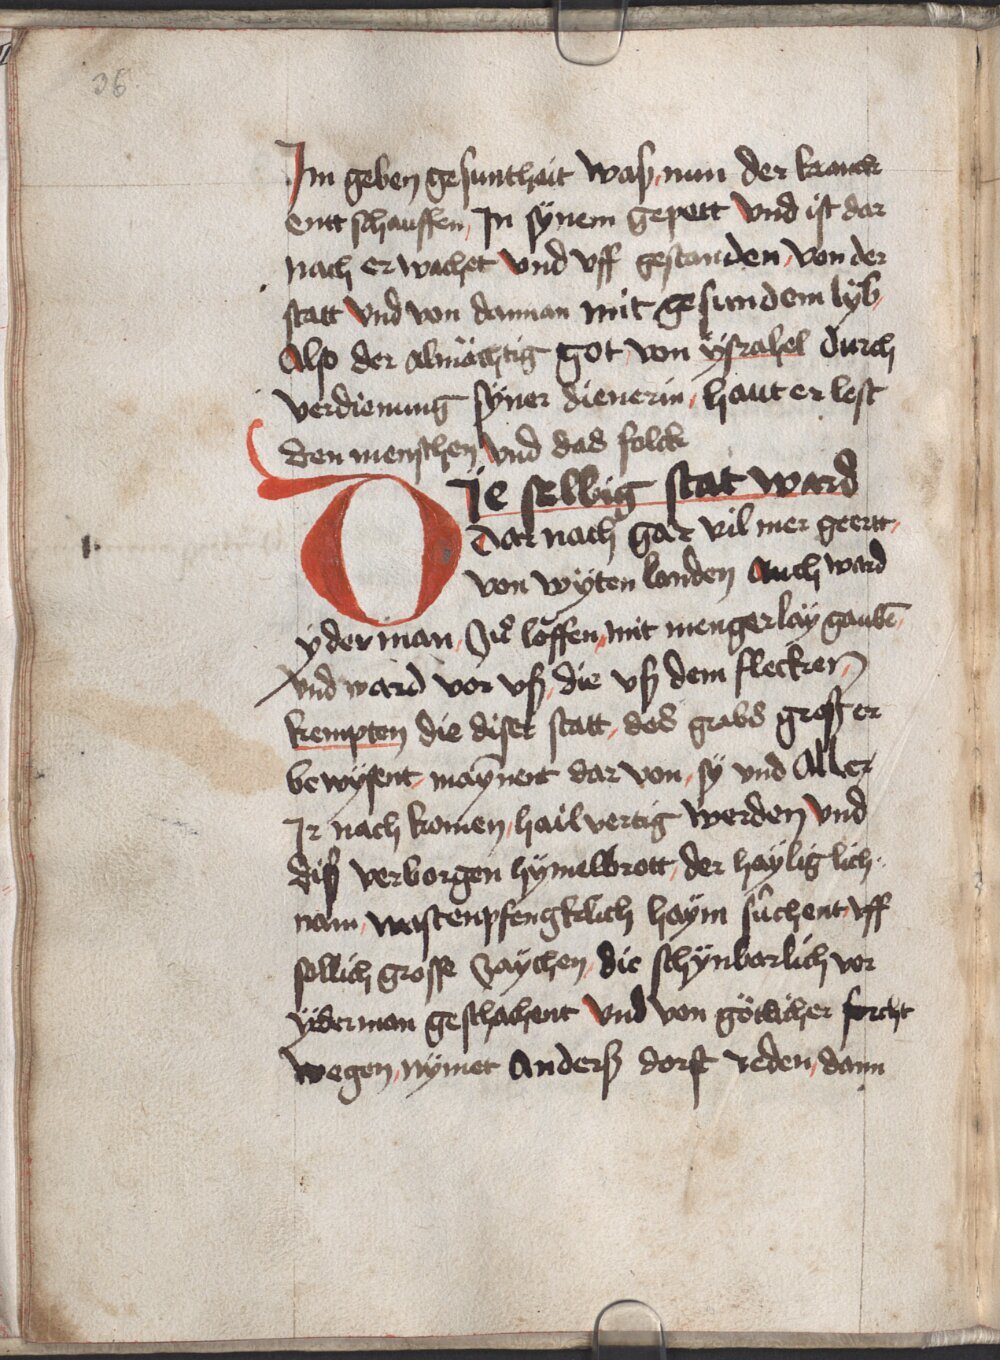 36
Im geben gesuntheit was nun der kranck
entt schauffen, In synem gepett Vnd ist dar
nach er wachet vnd vff gestanden, von der
statt Vnd von dannan mit gesundem lyb,
Also der almächtig got, von ysrahel durch
verdienung syner dienerin, haut er lest
den menschen Vnd das folck
Die selbig stat ward
dar nach gar vil mer geertt,
von wyten landen Auch ward
yderman, Zů löffen, mit mengerlay gaubē,
Vnd ward vor vß, die vß dem flecken,
kempten die diser statt, des grabs groß er
bewysent, maynent dar von, sy vnd Aller
Ir nach komen, hailvertig werden Vnd
diß verborgen hymelbrott, der haylig lich-
nam, haym sůchent, vff
sollich grosse Zaychen, die schynbarlich vor
yderman geschachent Vnd von götlicher forcht
wegen, nymet Anderß dorft reden, dann